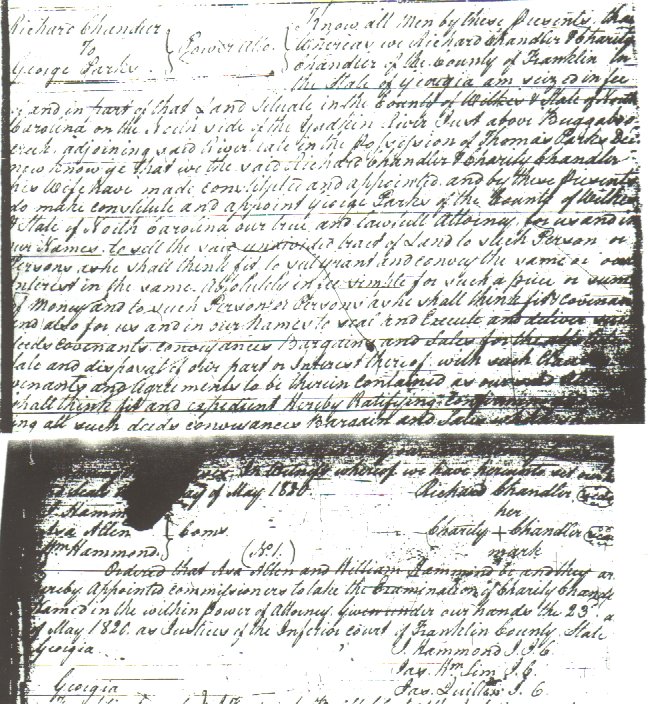 Richard Chandler
To
George Parks
Power Atto.
Know all Men by these Presents, that
Whereas we Richard Chandler & Charity
Chandler of the County of Franklin in
the State of Georgia am seized in fee
of and in part of that Land Situate in the County of Wilkes & State of North
Carolina on the North side of the Yadkin River Just above Buggaboo
Creek adjoining said River late in the possession of Thomas Parks Dec
now know ye that we the said Richard Chandler & Charity Chandler
his Wife have made constitute and appointed and by these Presents
do make constitute and appoint George Parks of the County of Wilkes
& State of North Carolina our true and lawfull Attorney for us and in
our Names to sell the said undivided tract of Land to such Person or
Persons as he shall think fit to sell grant and convey the same or our
Interest in the same Absolutely in fee simple for such a price or sum
of Money and to such Person or Persons as he shall think fit & covenan
and also for us and in our Names to seal and Execute and deliver
deeds covenants conveyances Bargain and Sales for the
Sale and disposal of our part or Interest thereof with such
venants and agreements to be therein contained as our said
shall think fit and expedient Hereby Ratifying
ing all such deeds conveyances Bargain and Sales
In Witness whereof we have hereunto set our
& Seals day of May 1820
Richard Chandler (Seal)
Hammon
her
Asa Allen
Coms
Charity + Chandler (Seal)
Wm Hammond
mark
(No 1.)
Ordered that Asa Allen and William Hammond be and they are
hereby Appointed commissioners to take the Examination of Charity Chandl
named in the within Power of Attorney Given under our hands the 23d
of May 1820. as Justices of the Inferior court of Franklin County State
Georgia
J. Hammond J. I. C.
Jas. J. C.
Jas. J. C.
Georgia